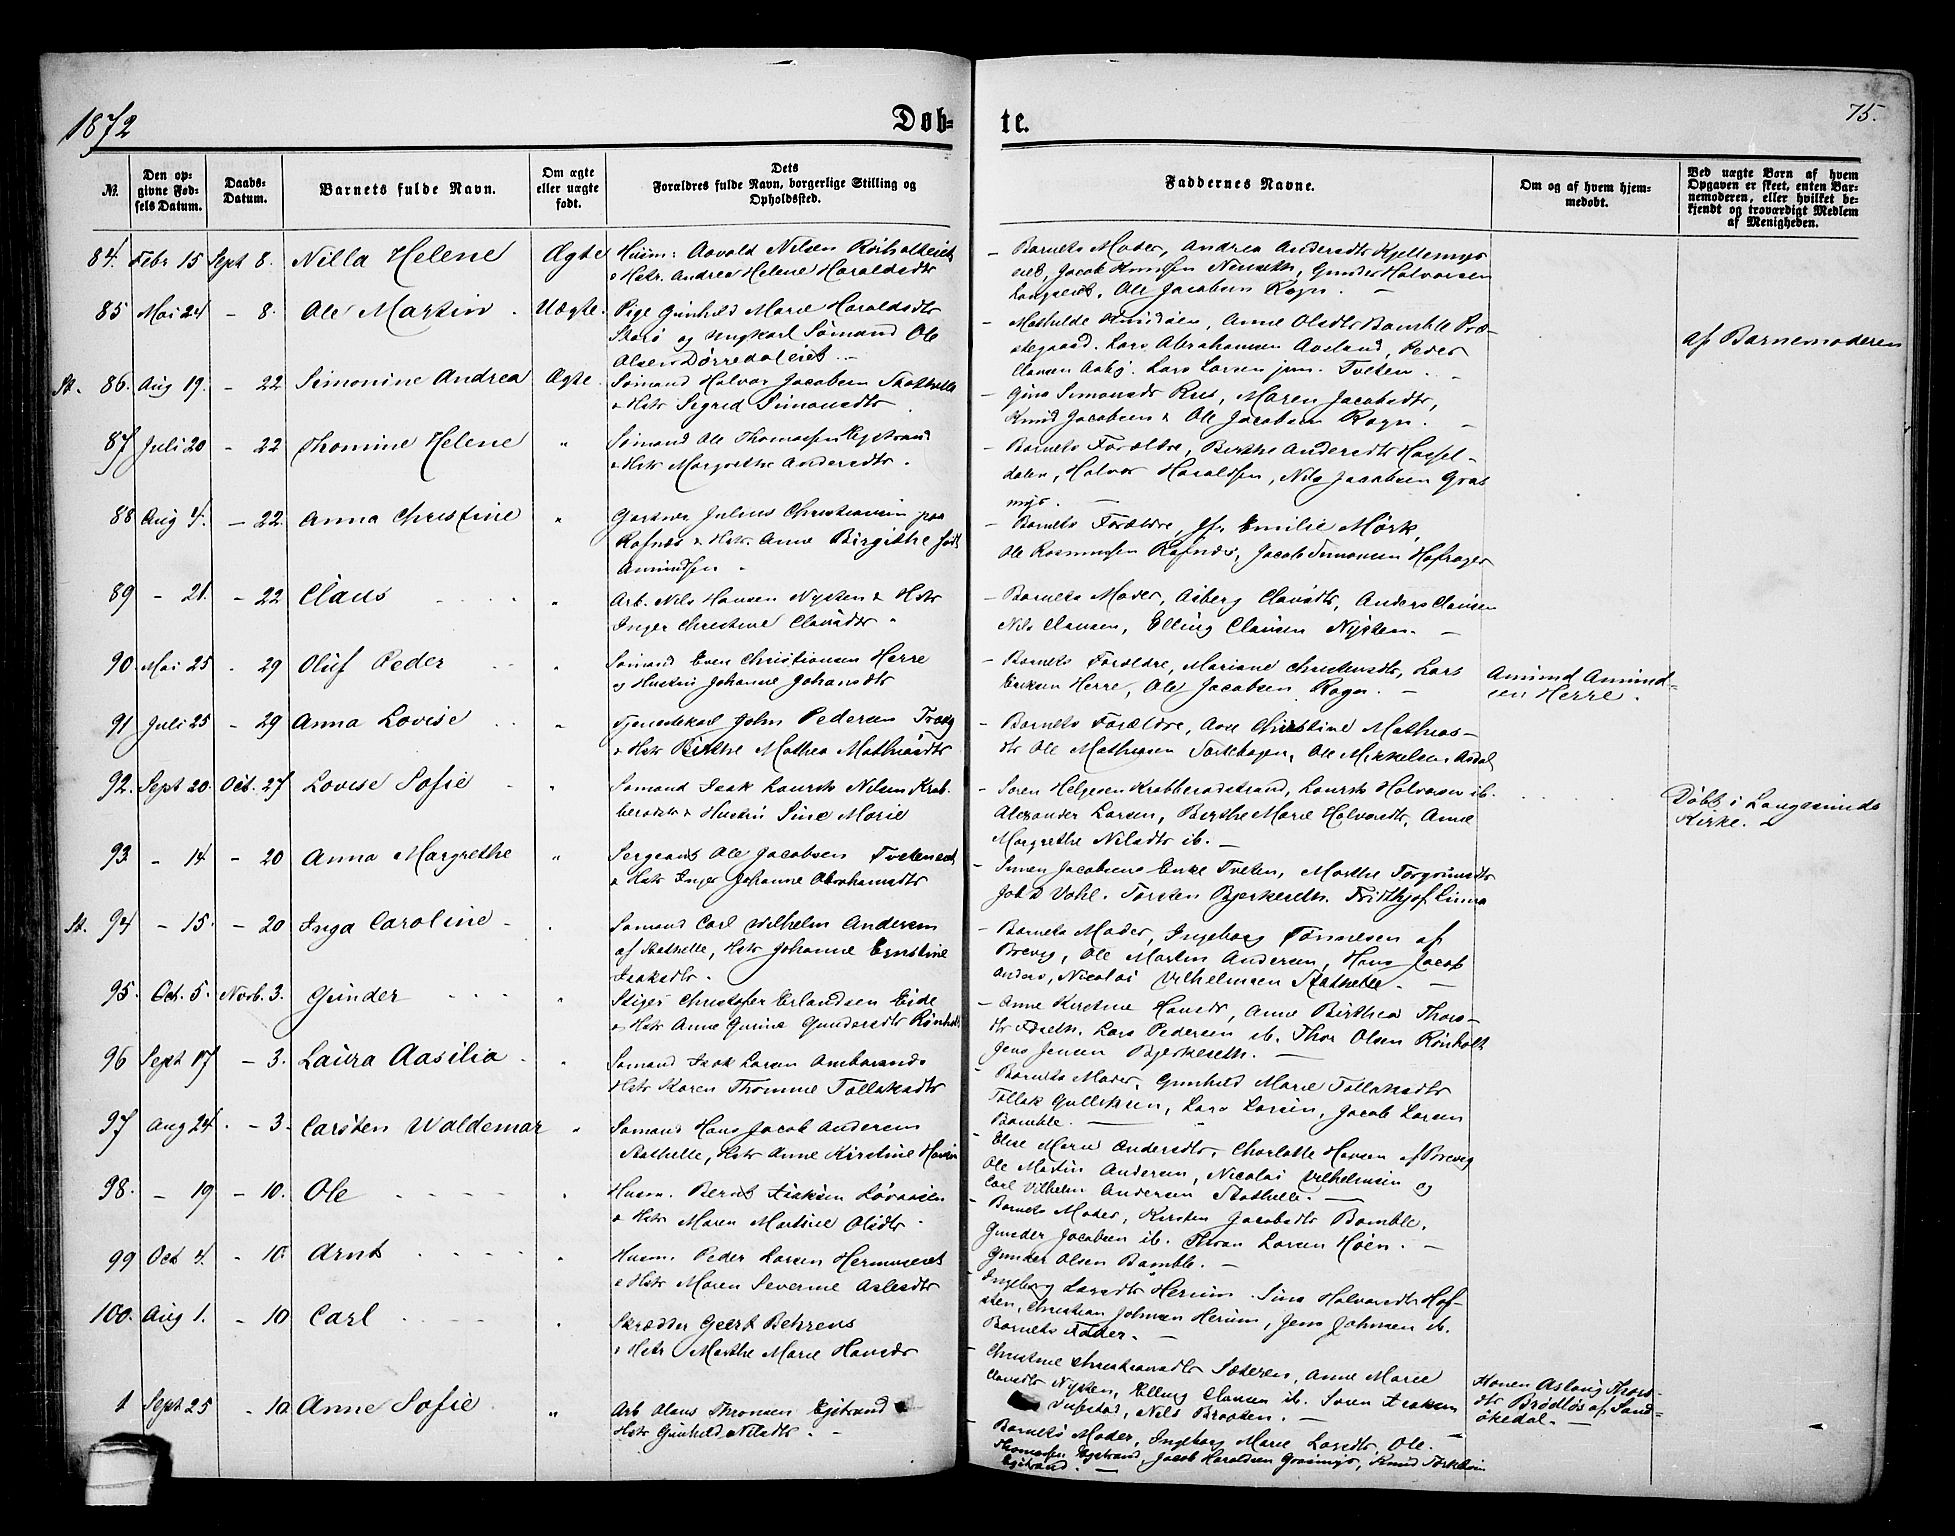 1872
Døb-
te.
75.
№.
Den op-
givne Fød-
sels Datum.
Daabs-
Datum.
Barnets fulde Navn.
Om ægte
eller uægte
født.
Dets
Forældres fulde Navn, borgerlige Stilling og
Opholdssted.
Faddernes Navne.
Om og af hvem hjem-
medøbt.
Ved uægte Børn af hvem
Opgaven er skeet, enten Bar-
nemoderen, eller hvilket be-
kjendt og troværdigt Medlem
af Menigheden.
84. Febr 15 Sept 8. Nilla Helene Ægte Husm: Aavald Nilsen Rørholteiet
& Hstr. Andrea Helene Haraldsdtr
– Barnets Moder, Andrea Andersdtr Kjellemyr
eiet, Jacob Knudsen, Gunder Halvorsen
Langseiet, Ole Jacobsen Rogn. –
85 Mai 24 – 8. Ole Martin. Uægte. Pige Gunhild Marie Haraldsdtr
og Ungkarl Sømand Ole
Olsen Dørredaleiet. –
– Mathilde Knudsen, Anne Olsdtr Bamble Præ-
stegaard. Lars Abrahamsen Aasland, Peder
Clausen Aaby. Lars Larsen jun. Tveten. –
af Barnemoderen
St. 86. Aug 19. – 22 Simonine Andrea Ægte. Sømand Halvor Jacobsen Stathelle
& Hstr Sigrid Simonsdtr.
– Gina Simonsdtr Rus, Maren Jacobsdtr,
Knud Jacobsen & Ole Jacobsen Rogn. –
87 Juli 20 – 22 Thomine Helene " Sømand Ole Thomassen Egstrand
& Hstr Margrethe Andersdtr.
– Barnets Forældre, Birthe Andersdtr Hassel-
dalen, Halvor Haraldsen, Nils Jacobsen Gras
myr. –
88 Aug 4. – 22. Anna Christine " Gartner Julius Christiansen paa
Rafnæs & Hstr. Anne Birgithe født
Amundsen.
– Barnets Forældre, Jfr Emilie Mørk,
Ole Rasmussen Rafnæs, Jacob Simonsen Hafsager
89 – 21. – 22 Claus " Arb. Nils Hansen Nysten & Hstr
Inger Christine Clausdtr.
– Barnets Moder, Asberg Clausdtr, Anders Clausen
Nils Clausen, Elling Clausen Nysten. –
90. Mai 25 – 29 Oluf Peder " Sømand Even Christiansen Herre
og Hustru Johanne Johansdtr
– Barnets Forældre, Mariane Christensdtr, Lars
Eriksen Herre, Ole Jacobsen Rogn. –
Amund Amund-
sen Herre.
91 Juli 25 – 29 Anna Lovise " Tjenestekarl John Pedersen Tvæg
& Hstr Birthe Mathea Mathiasdtr
– Barnets Forældre, Aase Christine Mathias-
dtr Ole Mathiasen Torkehagen, Ole Mikkelsen Asdal
92. Sept 20. Oct. 27 Lovise Sofie " Sømand Isak Laurits Nilsen Krab
berødstr & Hustru Sine Marie
– Søren Helgesen Krabberødstrand, Laurits Halvorsen ib.
Alexander Larsen, Berthe Marie Halvorsdtr, Anne
Margrethe Nilsdtr ib. –
Døbt i Langesunds
Kirke.
93 – 14 – 20 Anna Margrethe " Sergeant Ole Jacobsen Tveteneiet
& Hstr Inger Johanne Abrahamsdtr
– Simen Jacobsens Enke Tveten, Marthe Torgrimsdtr
Vahl. Torsten Bjerkeseth. Frithjof Linna
St. 94 – 15. – 20 Inga Caroline – . Sømand Carl Vilhelm Andersen
af Stathelle, Hstr Johanne Ernstine
Isaksdtr.
– Barnets Moder, Ingeborg Tønnesen af
Brevig, Ole Martin Andersen, Hans Jacob
Anders, Nicolai Vilhelmsen Stathelle. –
95. Oct. 5. Novb. 3. Gunder " Stiger Christofer Erlandsen Eide
& Hstr Anne Gurine Gundersdtr Rønholt
– Anne Kirstine Hansdtr, Anne Birthea Thors-
dtr, Lars Pedersen ib. Thor Olsen Rønholt
Jens Jensen Bjerkeseth. –
96 Sept 17 – 3. Laura Aasilia " Sømand Isak Larsen Ombarsnæs
Hstr Karen Thomine Tallaksdtr
– Barnets Moder, Gunhild Marie Tallaksdtr
Tallak Gulliksen, Lars Larsen, Jacob Larsen
Bamble. –
97 Aug 24. – 3. Carsten Waldemar " Sømand Hans Jacob Andersen
Stathelle, Hstr Anne Kirstine Hansen
– Else Marie Andersdtr, Charlotte Hansen af Brevig
Ole Martin Andersen, Nicolai Vilhelmsen og
Carl Vilhelm Andersen Stathelle. –
98. – 19 – 10. Ole " Husm. Bernt Isaksen Løvaasen
& Hstr Maren Martine Olsdtr
– Barnets Moder, Kirsten Jacobsdtr Bamble,
Gunder Jacobsen ib. Thron Larsen Høen. –
Gunder Olsen Bamble. –
99 Oct 4. – 10. Arnt " Husm. Peder Larsen Hermanseiet
& Hstr Maren Severine Aslesdtr
– Ingeborg Larsdtr Herum. Sina Halvorsdtr Haf-
sten, Christian Johnsen Herum, Jens Johnsen ib.
Barnets Fader. –
100. Aug 1. – 10 Carl " Skræder Geert Behrens
& Hstr Marthe Marie Hansdtr
– Christine Christiansdtr Sæteren, Anne Marie
Clausdtr Nysten, Elling Clausen ib. Søren Isaksen
Tufstad, Nils Braaten. –
1 Sept 25 – 10 Anne Sofie " Arb Olaus Thomsen Egstrand &
Hstr Gunhild Nilsdtr. –
– Barnets Moder, Ingeborg Marie Larsdtr, Ole
Thomassen Egstrand, Jacob Haraldsen Grasmyr, Knud Torkelsen
Egstrand. –
Konen Aslaug Thors-
dtr Brødløs af Sand-
økedal. –